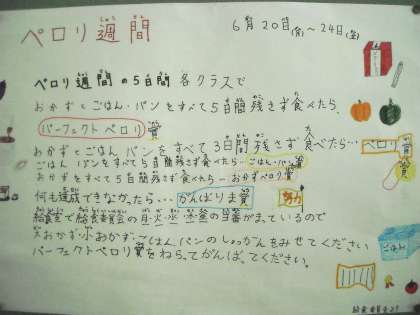 ペロリ週間
6月20日(月)～24日(金)
ペロリ週間の5日間各クラスで
おかずとごはん・パンをすべて5日間残さず食べたら、
パーフェクトペロリ賞
おかずとごはん、パンをすべて3日間残さず食べたら…ペロリ賞
ごはん、パンをすべて5日間残さず食べたら…ごはん・パン賞
おかずをすべて5日間残さず食べたら…おかずペロリ賞
何も達成できなかったら…がんばりま賞 努力
給食室で給食委員会の月・火・水・木・金の当番がまっているので
大おかず・小おかず・ごはん、パンのしょっかんをみせてください
パーフェクトペロリ賞をねらってがんばってください。
ごはん